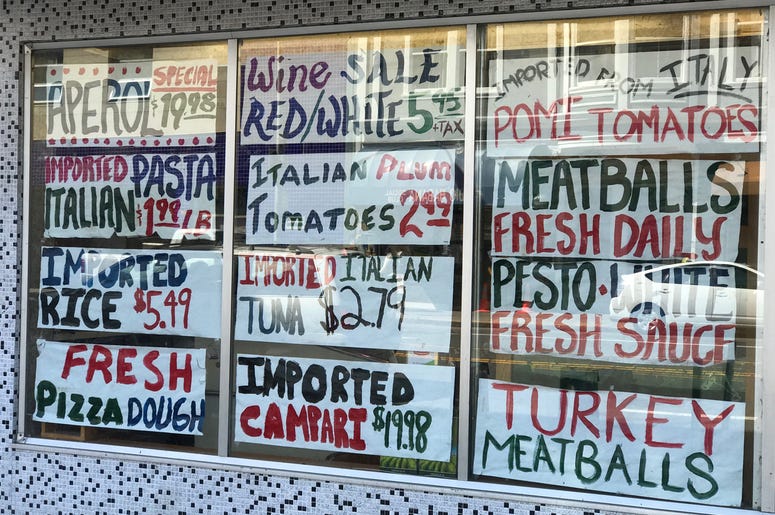 APEROL SPECIAL
$19.98
IMPORTED PASTA
ITALIAN $1.99/LB
IMPORTED
RICE $5.49
FRESH
PIZZA DOUGH
Wine SALE
RED/WHITE 5.95
+TAX
ITALIAN PLUM
TOMATOES 2.99
IMPORTED ITALIAN
TUNA $2.79
IMPORTED
CAMPARI $19.98
IMPORTED FROM ITALY
POMI TOMATOES
MEATBALLS
FRESH DAILY
PESTO • WHITE
FRESH SAUCE
TURKEY
MEATBALLS